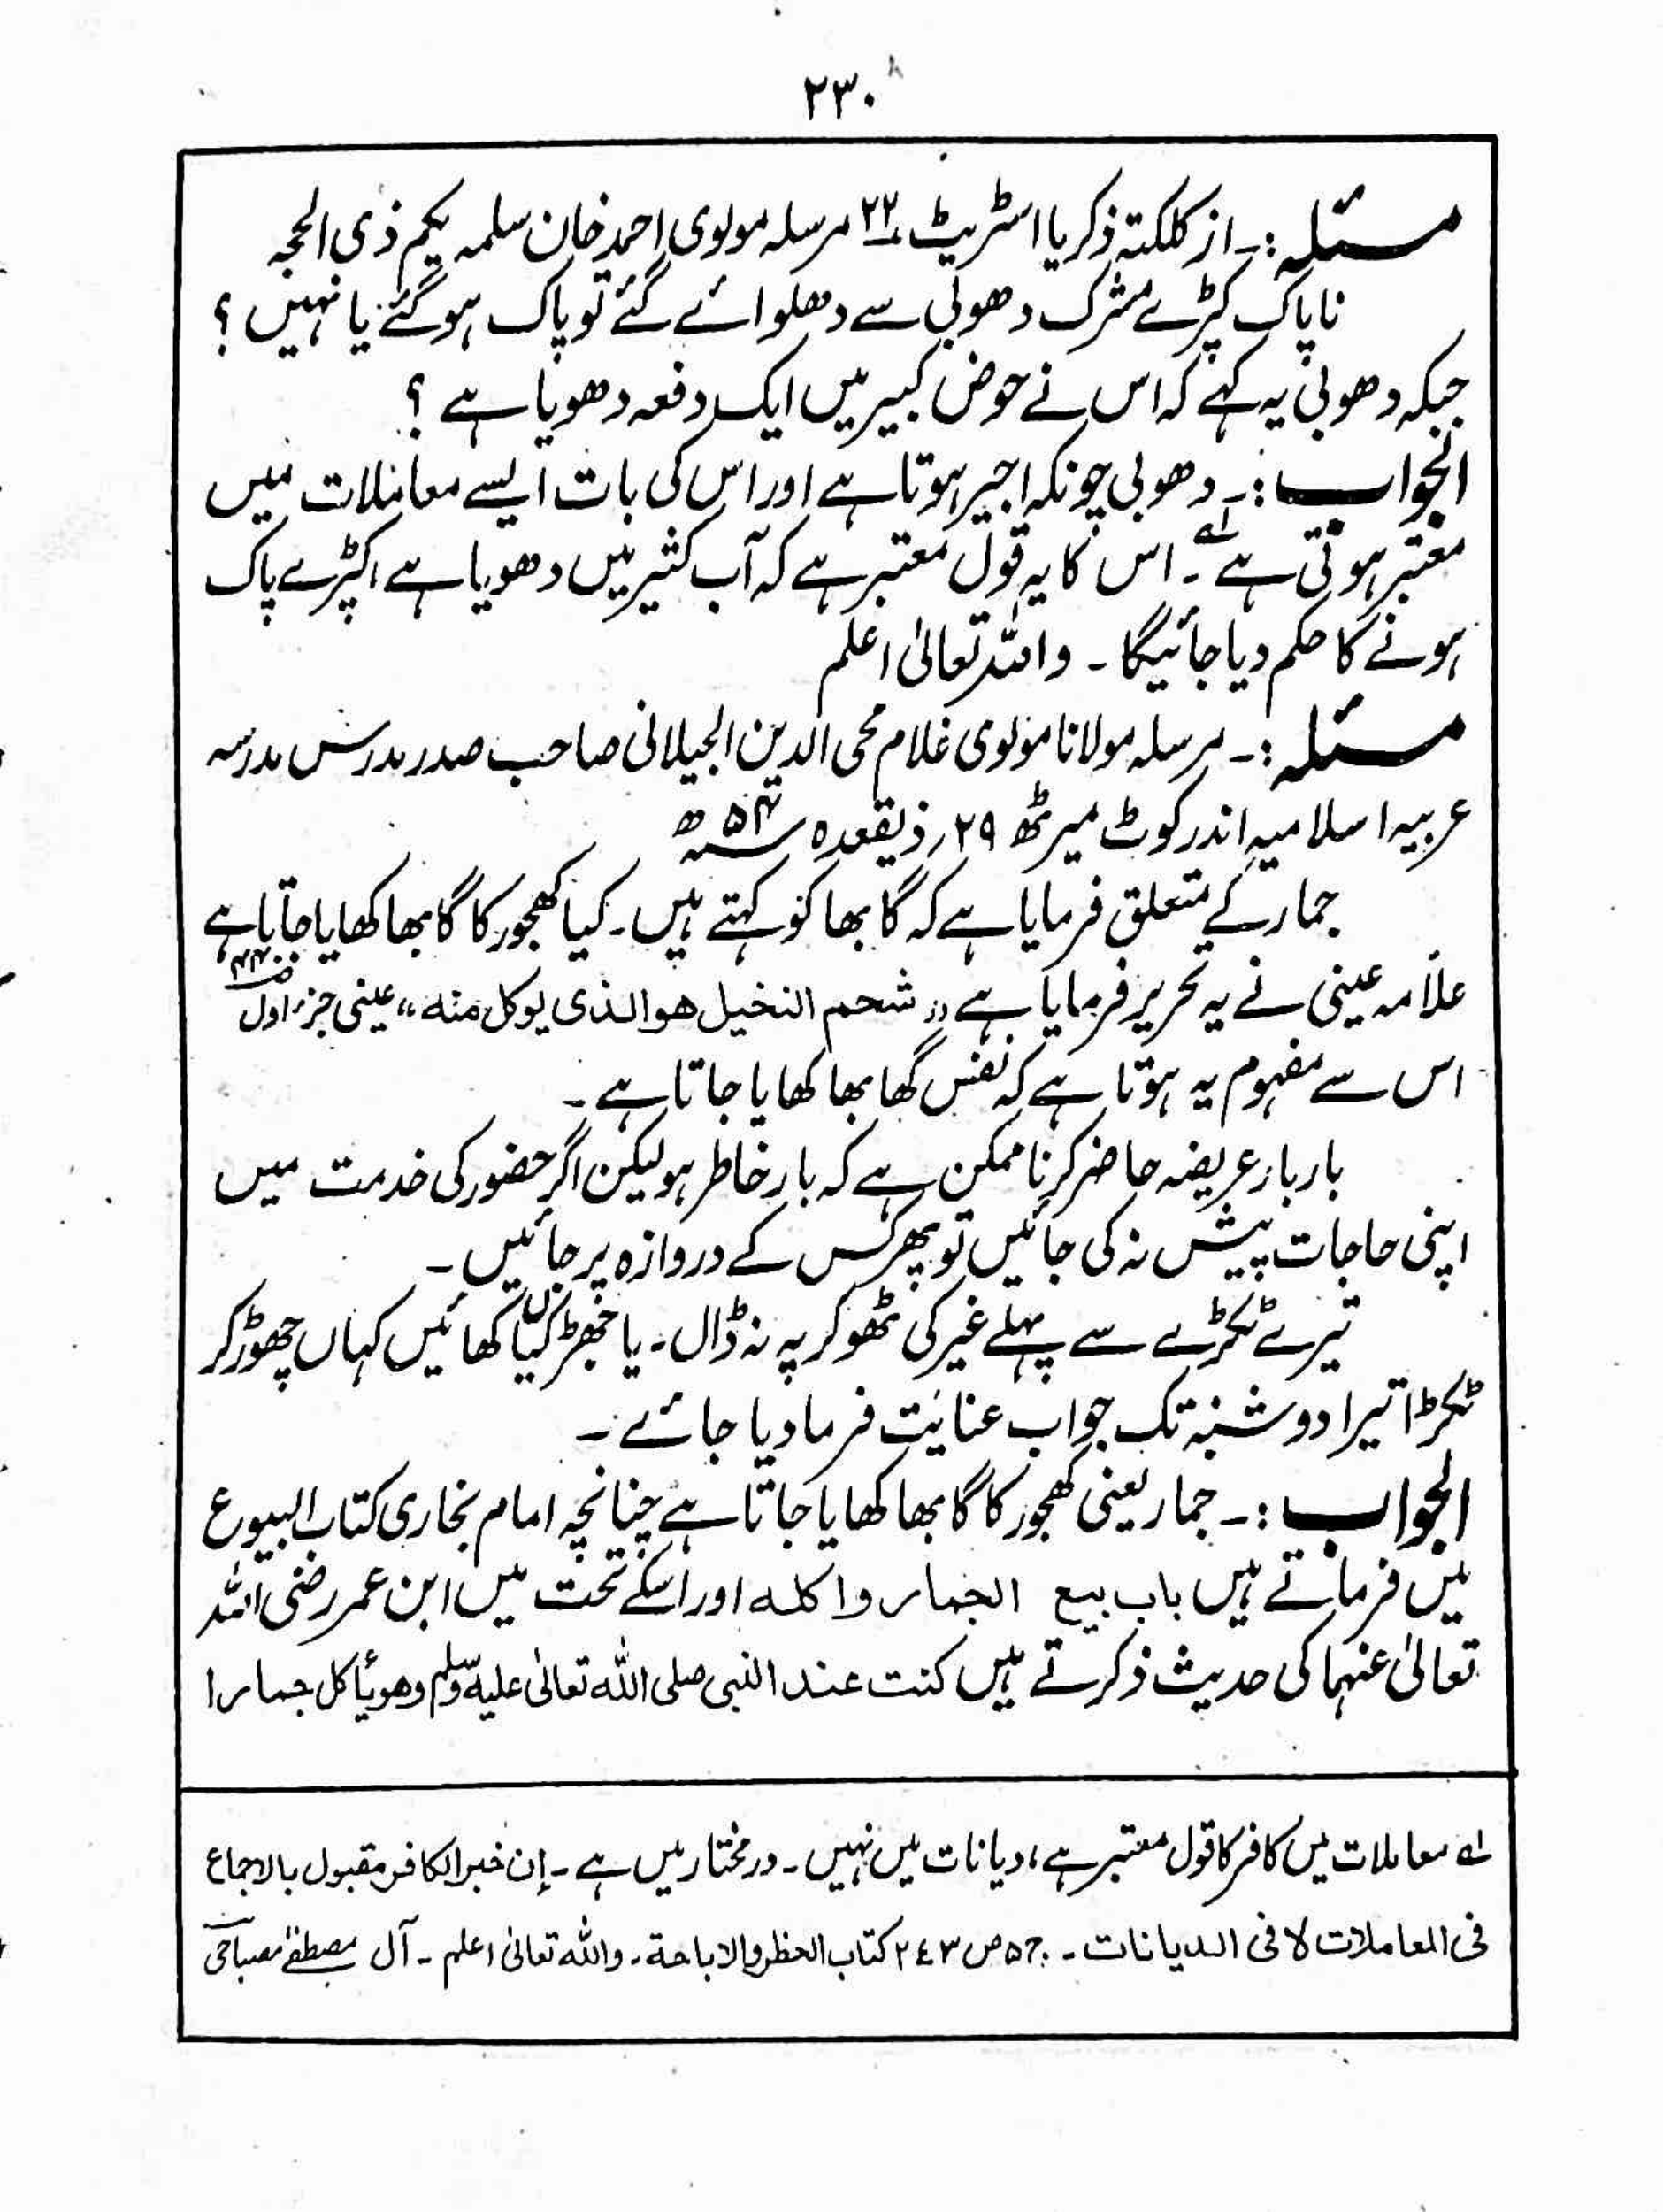 ۲۳۰
مسئلہ :۔ از کلکتہ ذکریا اسٹریٹ ۲۲ مرسلہ مولوی احمد خان سلمہ یکم ذی الحجہ
ناپاک کپڑے مشرک دھوبی سے دھلوائے گئے تو پاک ہوگئے یا نہیں ؟
جبکہ دھوبی یہ کہے کہ اس نے حوض کبیر میں ایک دفعہ دھویا ہے ؟
الجواب :۔ دھوبی چونکہ اجیر ہوتا ہے اور اس کی بات ایسے معاملات میں
معتبر ہوتی ہے ۱ے۔ اس کا یہ قول معتبر ہے کہ آب کثیر میں دھویا ہے، کپڑے پاک
ہونے کا حکم دیا جائیگا ۔ واللہ تعالیٰ اعلم
مسئلہ :۔ مرسلہ مولانا مولوی غلام محی الدین الجیلانی صاحب صدر مدرس مدرسہ
عربیہ اسلامیہ اندر کوٹ میرٹھ ۲۹؍ ذیقعدہ ۵۴ھ
جمار کے متعلق فرمایا ہے کہ گابھا کو کہتے ہیں۔ کیا کھجور کا گابھا کھایا جاتا ہے
علامہ عینی نے یہ تحریر فرمایا ہے ،، شحم النخیل ھو الذی یوکل منہ ،، عینی جزء اول
اس سے مفہوم یہ ہوتا ہے کہ نفس گھابھا کھایا جاتا ہے ۔
بار بار عریضہ حاضر کرنا ممکن ہے کہ بار خاطر ہو لیکن اگر حضور کی خدمت میں
اپنی حاجات پیش نہ کی جائیں تو پھر کس کے دروازہ پر جائیں ۔
تیرے ٹکڑے سے پہلے غیر کی ٹھوکر پہ نہ ڈال ۔ یا جھڑکیاں کھائیں کہاں چھوڑ کر
ٹکڑا تیرا دو شنبہ تک جواب عنایت فرما دیا جائے ۔
الجواب :۔ جمار یعنی کھجور کا گابھا کھایا جاتا ہے چنانچہ امام بخاری کتاب البیوع
میں فرماتے ہیں باب بیع الجمار واکلہ اور اسکے تحت میں ابن عمر رضی اللہ
تعالیٰ عنہما کی حدیث ذکر کرتے ہیں کنت عند النبی صلی اللہ تعالیٰ علیہ وسلم وھو یأکل جمارا
۱ے معاملات میں کافر کا قول معتبر ہے، دیانات میں نہیں ۔ درمختار میں ہے ۔ إن خبر الکافر مقبول بالاجماع
فی المعاملات لا فی الدیانات ۔ ج۵ ص ۲٤۳ کتاب الحظر والاباحة ۔ واللہ تعالیٰ اعلم ۔ آل مصطفےٰ مصباحی